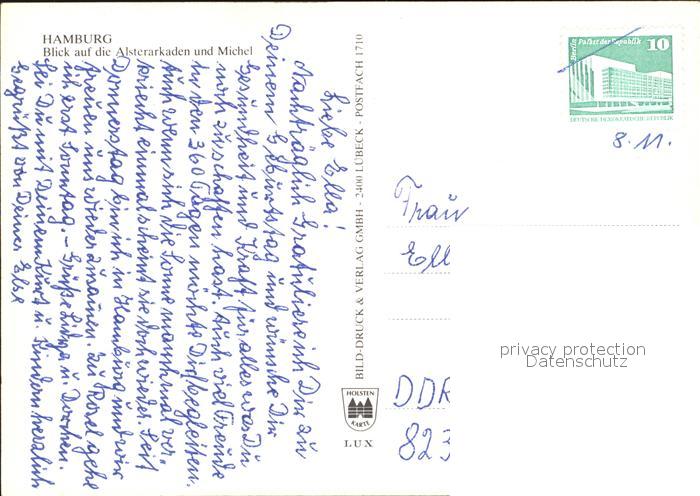 HAMBURG
Blick auf die Alsterarkaden und Michel
Liebe Ella!
Nachträglich Gratuliere ich Dir zu
Deinem Geburtstag und wünsche Dir
Gesundheit und Kraft für alles was Du
noch zu schaffen hast. Auch viel Freude
in den 360 Tagen möchte Dich begleiten.
Auch wenn sich die Sonne manchmal ver-
kriecht einmal scheint sie doch wieder. Seit
Donnerstag bin ich in Hamburg und wir
freuen uns wieder zusamen. Zu Rosel gehe
ich erst Sonntag. – Grüße Lidya u. Dorchen.
Sei Du mit Deinem Kurt u. Kindern herzlich
Gegrüßt von Deiner Else
BILD-DRUCK & VERLAG GMBH - 2400 LÜBECK - POSTFACH 1710
HOLSTEN
KARTE
LUX
Berlin Palast der Republik 10
DEUTSCHE DEMOKRATISCHE REPUBLIK
8.11.
Frau
Ell
DDR
823
privacy protection
Datenschutz